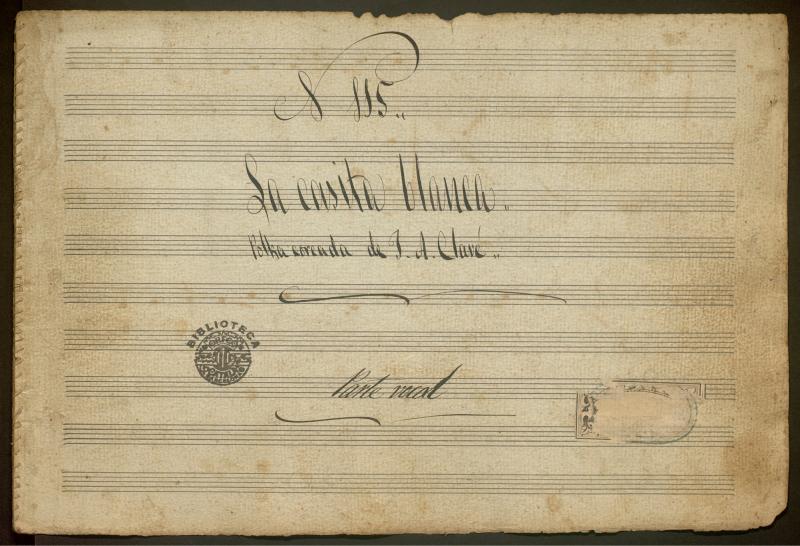 N 115„
La casita blanca„
Polka coreada de J. A. Clavé„
BIBLIOTECA
Parte vocal